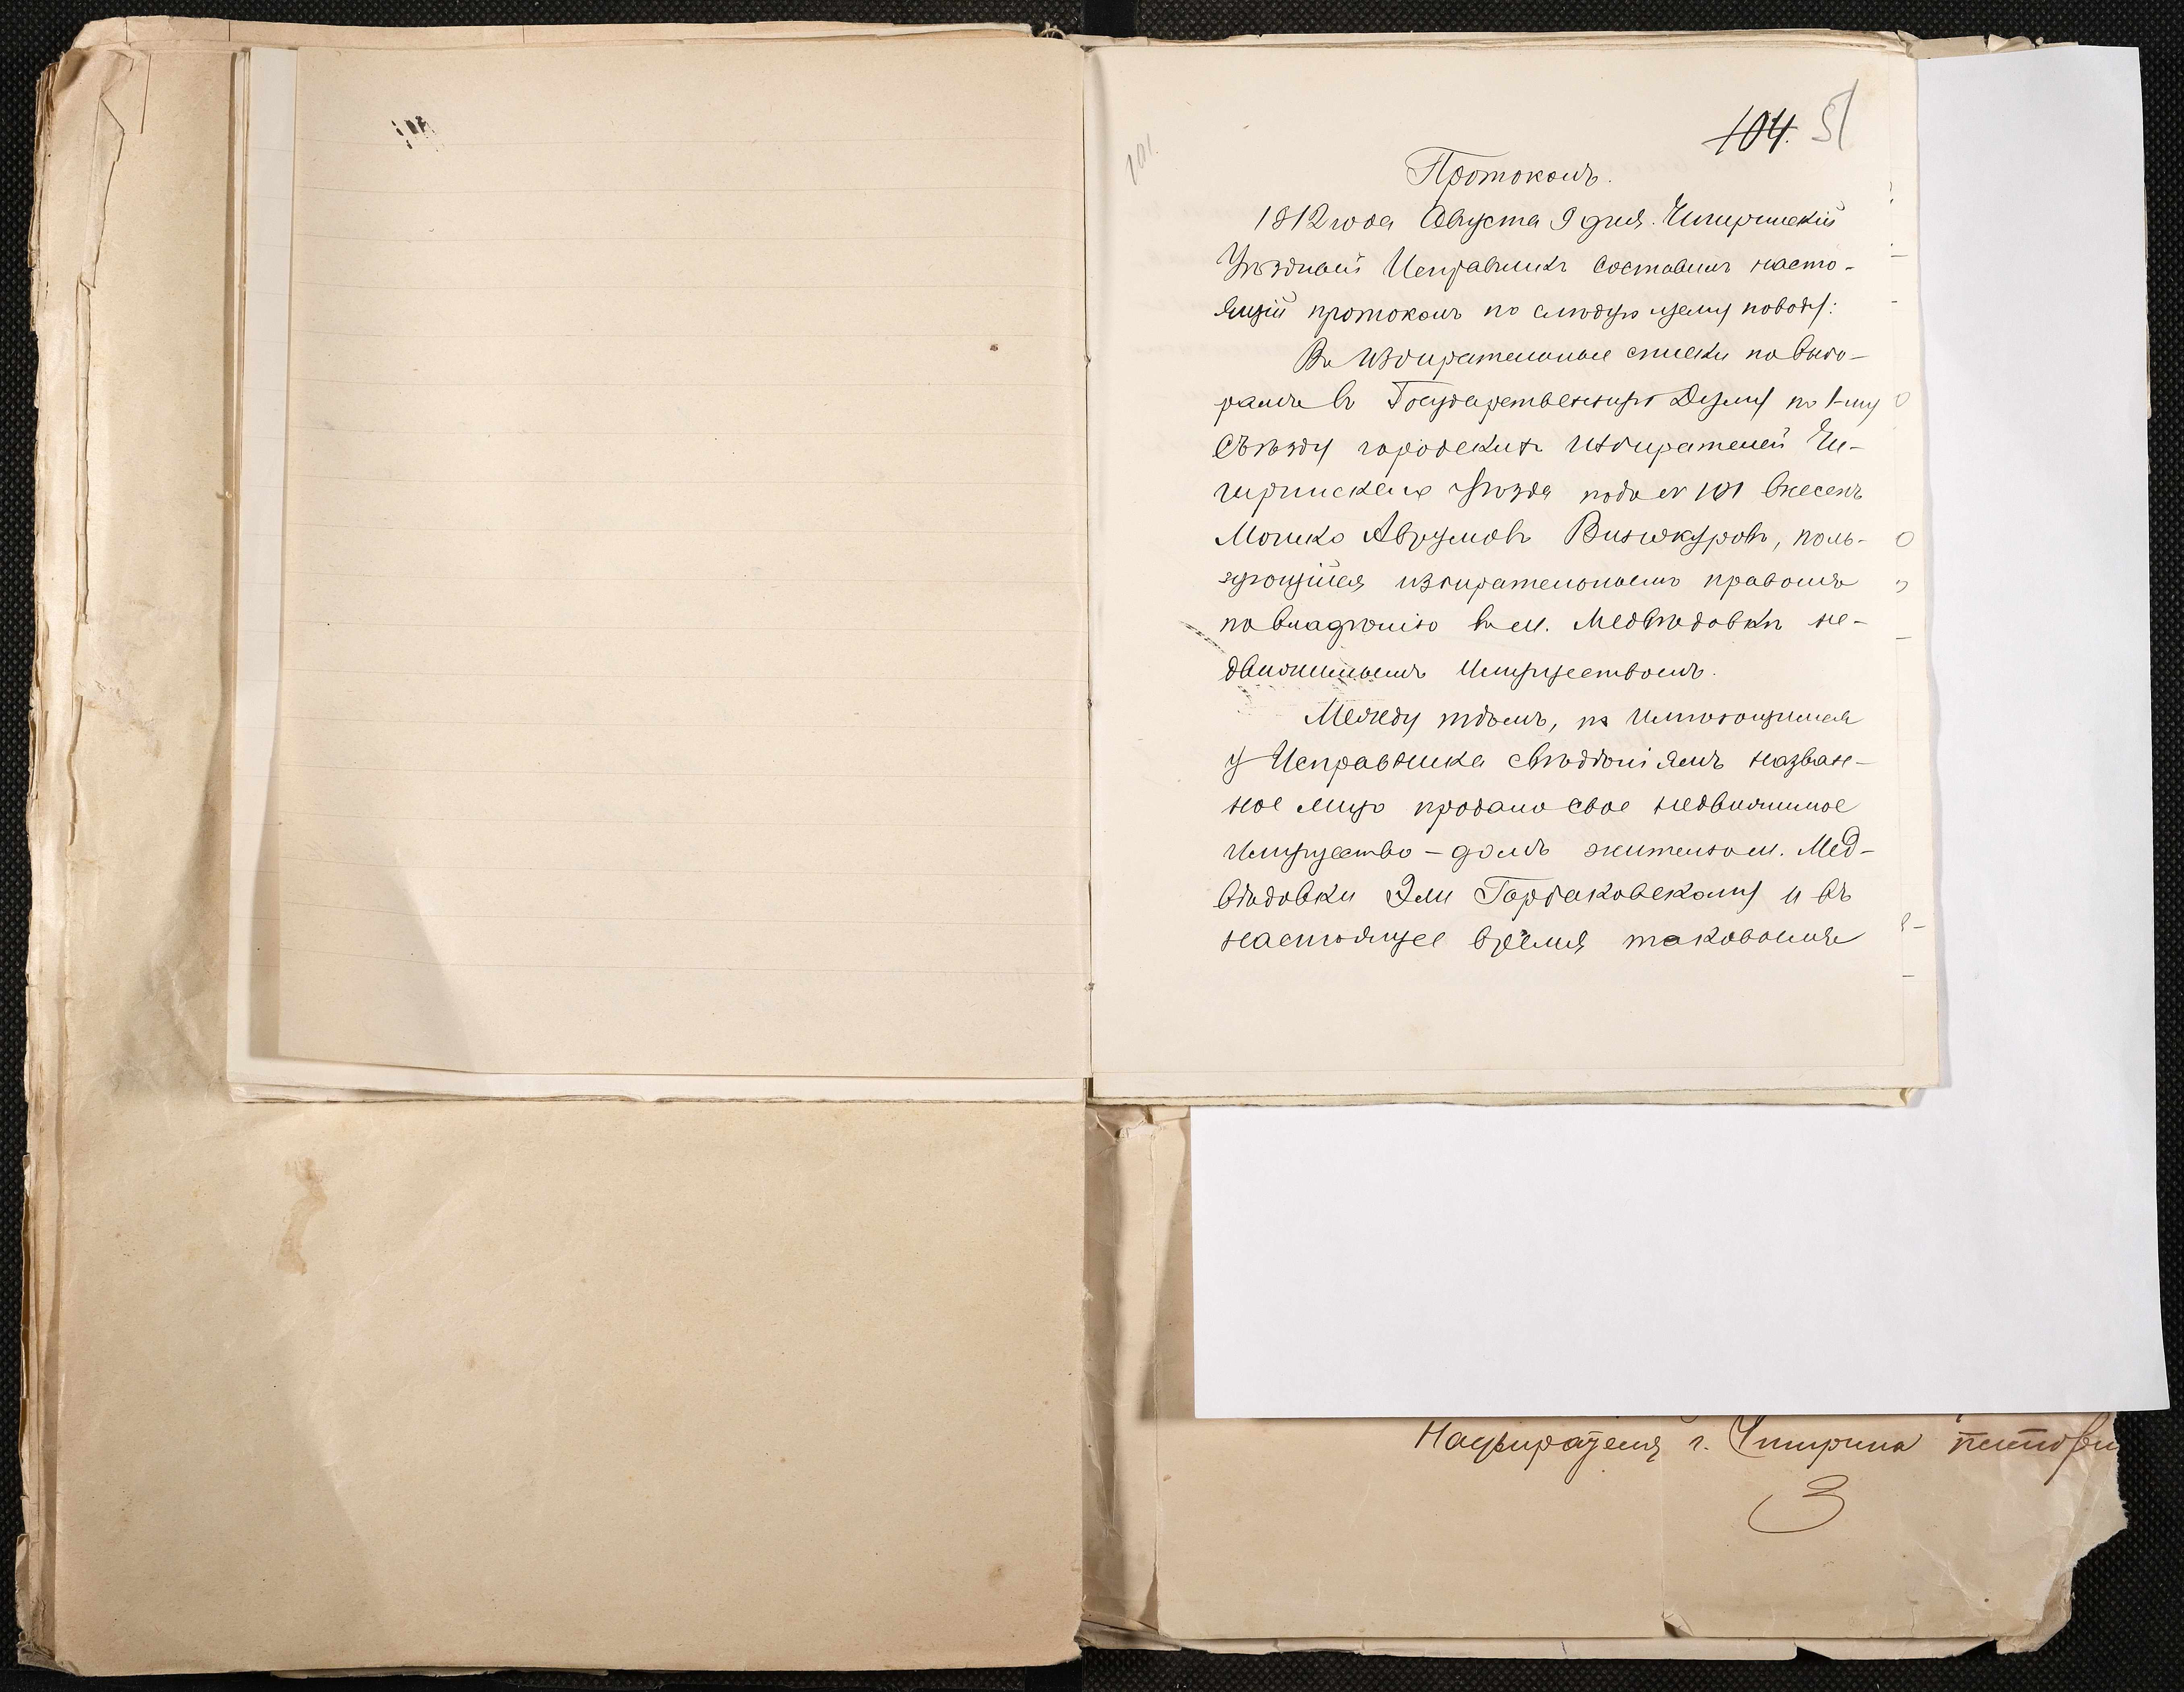 104. 51
101.
Протоколъ.
1912 года Августа 9 дня. Чигиринскій
Уѣздный Исправникъ составилъ насто-
ящій протоколъ по слѣдующему поводу:
Въ избирательные списки по выбо-
рамъ въ Государственную Думу по 1-му
съѣзду городскихъ избирателей Чи-
гиринскаго уѣзда подъ № 101 внесенъ
Мошко Аврумовъ Винокуровъ, поль-
зующійся избирательнымъ правомъ
по владѣнію въ м. Медвѣдовкѣ не-
движимымъ имуществомъ.
Между тѣмъ, по имѣющимся
у Исправника свѣдѣніямъ назван-
ное лицо продало свое недвижимое
имущество - домъ жителю м. Мед-
вѣдовки Эли Горбаковскому и въ
настоящее время таковымъ
Надзирателя г. Чигирина
3